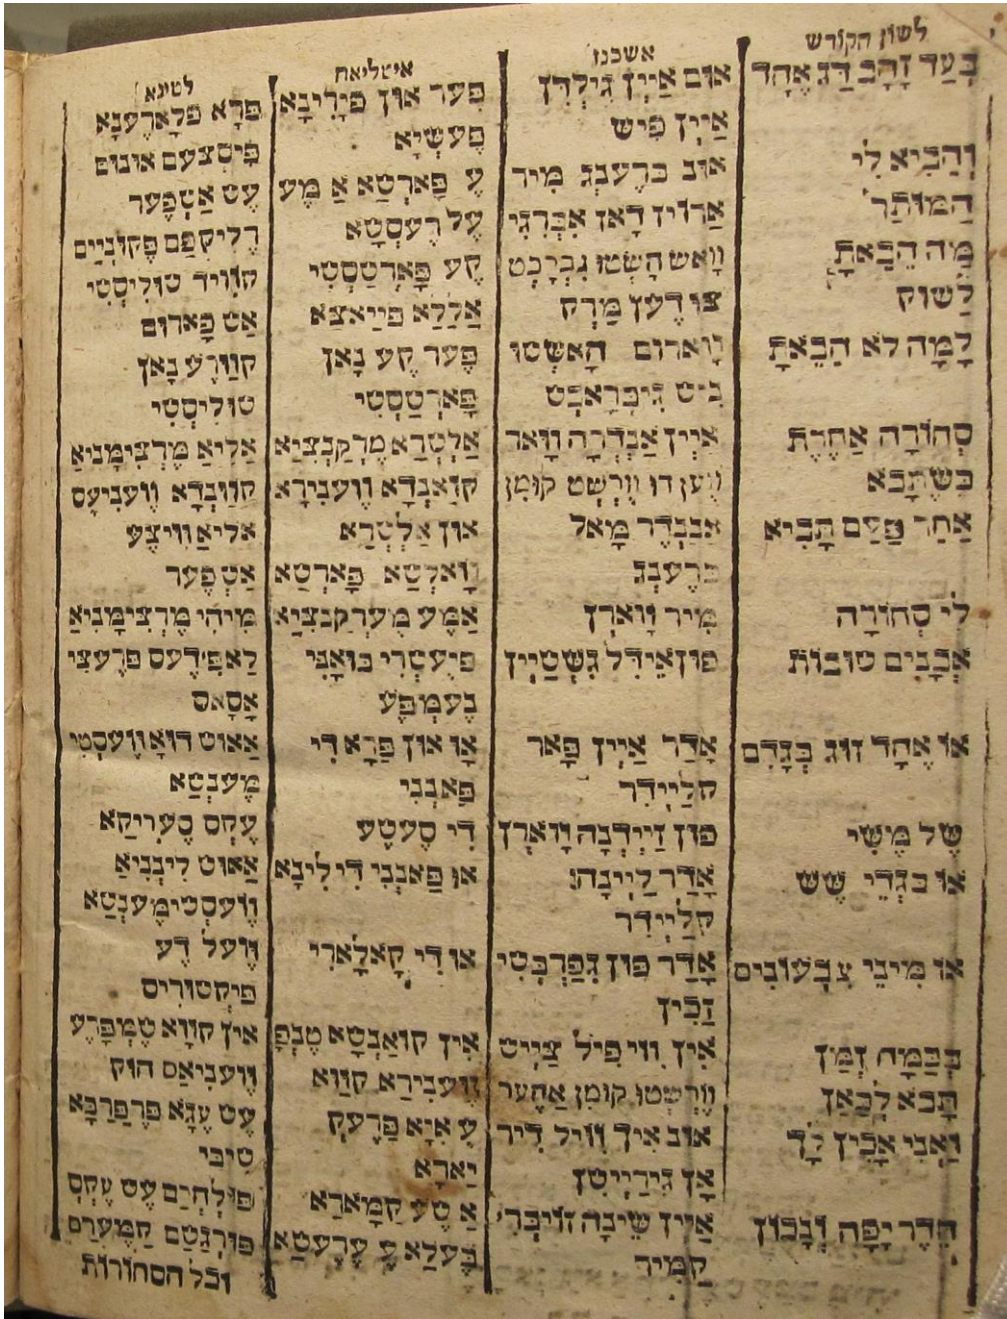 לשון הקודש
בְּעַד זָהָב דַּג אֶחָד
וְהָבִיא לִי
הַמּוֹתַר
מַה הֵבֵאתָ
לַשׁוּק
לָמָּה לֹא הֵבֵאתָ
סְחוֹרָה אַחֶרֶת
כְּשֶׁתָּבֹא
אַחַר פַּעַם תָּבִיא
לִי סְחוֹרָה
אֲבָנִים טוֹבוֹת
אוֹ אֶחָד זוּג בְּגָדִים
שֶׁל מֶשִׁי
אוֹ בִּגְדֵי שֵׁשׁ
אוֹ מִינֵי צִבְעוֹנִים
בְּכַמָּה זְמַן
תָּבֹא לְכַאן
וַאֲנִי אָכִין לָךְ
חֶדֶר יָפָה וְנָכוֹן
אשכנז
אום אַיְין גִּילְדִן
אַיְין פִיש
אונ ברֶענְג מִיר
אַרוֹיז דָאן אִבְּרִגִי
וָואש הָשְׂטוּ גִבְרָכְט
צו דֶען מַרְק
וָוארום הָאשְׂטו
גִיבְּרָאכְט
אַיְין אַנְדְרָה וָואר
ווען דו ווִרְשְׂט קומִן
אַנְדֶר מָאל
ברֶענְג
מִיר וָוארִן
פון אֵידִל גִשְׁטֵיין
אָדַר אַיְין פָּאר
קלַיְידִר
פון זַיְידְנָה וָוארִן
אָדַר לַיְינָהוּ
קלַיְידִר
אָדַר פון גִפַרְבְּטִי
זַכִין
אִין ווִי פִיל צַיְיט
ווִרְשְׂטו קומִן אַהֶער
אונ אִיך ווִיל דִיר
אָן גִירַיְיטִן
אַיְין שֵׁינָה זוֹיבְּרִי
קַמִיר
איטליאה
פֵּער און פִּיָרִינָא
פֶּעשְׂיָא
עֶ פָּארְטַא אַ מֶע
עֶל רֶעסְטָא
קֶע פָּארְטַסְטִי
אַלַלַא פִּייַאצַא
פֶּער קֶע נָאן
פָּארְטַסְטִי
אַלְטְרַא מֶרְקַנְצִיַא
קוַאנְדָא ווֶענִירָא
און אַלְטְרַא
ווָאלְטַא פָּארְטַא
אַמֶע מֶערְקַנְצִיַא
פִּיעֶטְרִי בּוּאָנִי
אָו און פַּרָא דִי
פַּאנְנִי
דִי סֶעטֶע
או פַּאנְנִי דִי לִינָא
או דִי קָאלָארִי
אִין קוּאַנְטָא טֶנְפָּ
ווֶענִירַא קוַוא
עֶ אִיָא פַּרֶעק
יַארָא
אַ טֶע קַמָארַא
בֶּעלַא עֶ עֶרֶעטַא
לטינא
פְּרָא פלָארֶענָא
פִּיסְצעם אונום
עֶט אַטְפֶער
רֶלִיקְפַם פֶּקוּנִיַים
קוִויד טוּלִיסְטִי
אַט פָארוּם
קווַרֶע נָאן
טוּלִיסְטִי
אַלִיאַ מֶרְצִימָנִיאַ
קווַנְדָא ווֶענִיעָס
אַלִיאַ ווִיצֶע
אַטְפֶער
מִיהִי מֶרְצִימָנִיאַ
לַאפִּידֶעס פְּרֶעצִי
אָסָאס
אַאוט דוּאָ ווֶעסְטִי
מֶענְטַא
עֶקְס סֶערִיקַא
אַאוט לִינְנִיאַ
ווֶעסְטִימֶענְטַא
ווֶעל דֶע
פִּיקְטוּרִיס
אִין קווָא טֶמְפָּרֶע
ווֶענִיאַס הוּק
עֶט עֶגָא פְּרֶפַּרַבָּא
טִיבִּי
פוּלְחְרַם עֶט עֶקְס
פּוּרְגַטַם קַמֶערַם
וכל הסחורות